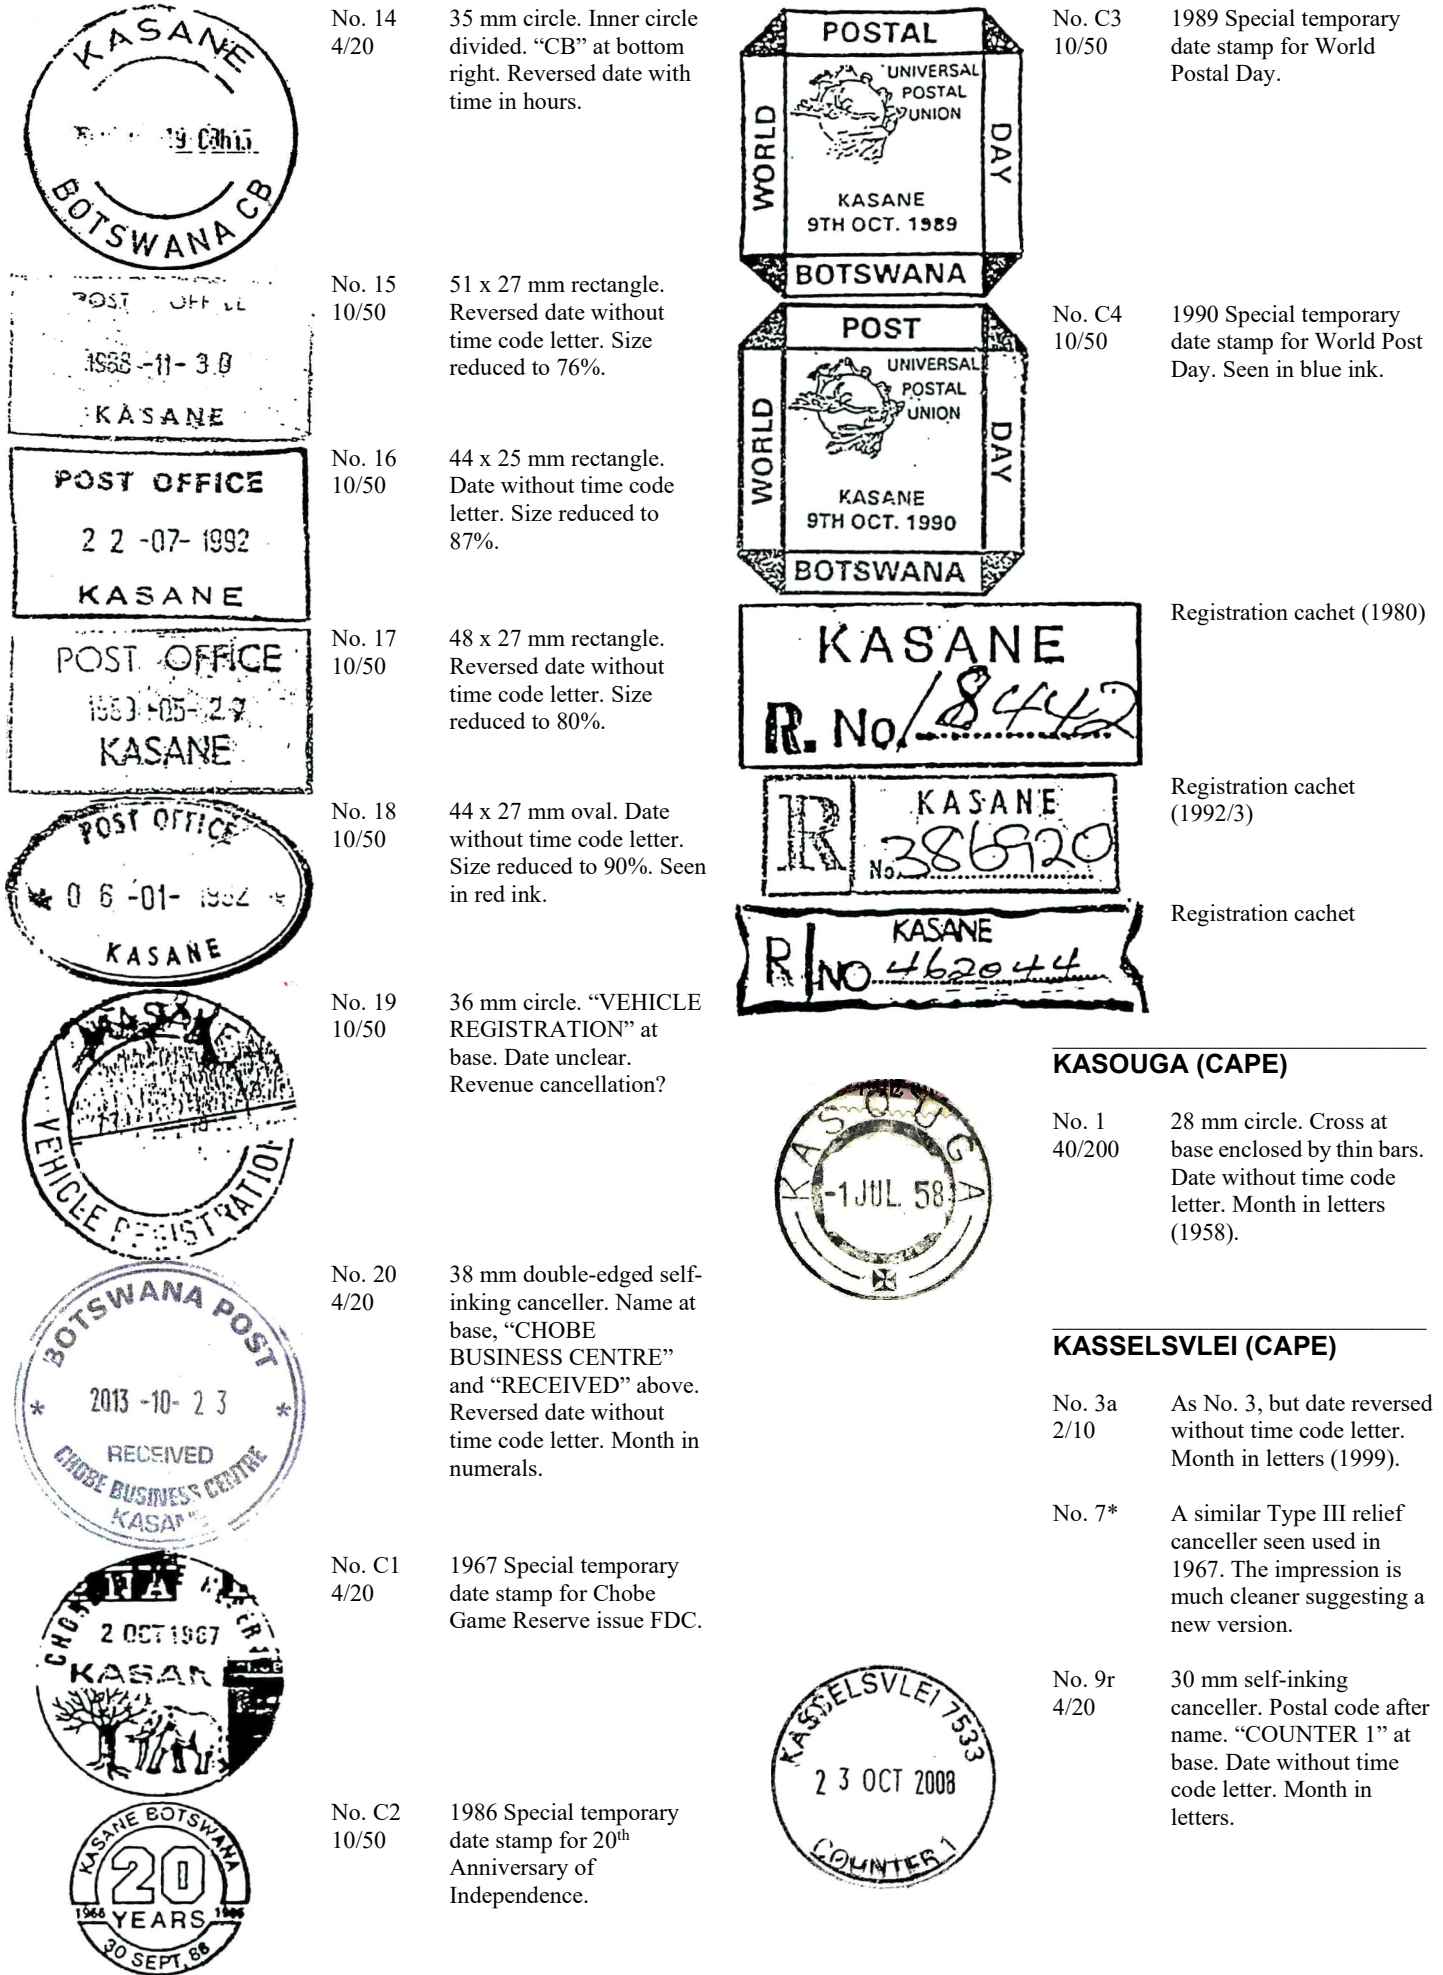 KASANE
19 08h15
BOTSWANA CB
No. 14
4/20
35 mm circle. Inner circle
divided. “CB” at bottom
right. Reversed date with
time in hours.
POST OFFICE
1988-11-30
KASANE
No. 15
10/50
51 x 27 mm rectangle.
Reversed date without
time code letter. Size
reduced to 76%.
POST OFFICE
22-07-1992
KASANE
No. 16
10/50
44 x 25 mm rectangle.
Date without time code
letter. Size reduced to
87%.
POST OFFICE
-05-27
KASANE
No. 17
10/50
48 x 27 mm rectangle.
Reversed date without
time code letter. Size
reduced to 80%.
POST OFFICE
06-01-
KASANE
No. 18
10/50
44 x 27 mm oval. Date
without time code letter.
Size reduced to 90%. Seen
in red ink.
KASANE
VEHICLE REGISTRATION
No. 19
10/50
36 mm circle. “VEHICLE
REGISTRATION” at
base. Date unclear.
Revenue cancellation?
BOTSWANA POST
* 2013 -10- 2 3 *
RECEIVED
CHOBE BUSINESS CENTRE
KASANE
No. 20
4/20
38 mm double-edged self-
inking canceller. Name at
base, “CHOBE
BUSINESS CENTRE”
and “RECEIVED” above.
Reversed date without
time code letter. Month in
numerals.
CHOBE
2 OCT 1967
KASAN
No. C1
4/20
1967 Special temporary
date stamp for Chobe
Game Reserve issue FDC.
KASANE BOTSWANA
20
1966 YEARS 1986
30 SEPT, 86
No. C2
10/50
1986 Special temporary
date stamp for 20th
Anniversary of
Independence.
POSTAL
UNIVERSAL
POSTAL
UNION
WORLD
DAY
KASANE
9TH OCT. 1989
BOTSWANA
No. C3
10/50
1989 Special temporary
date stamp for World
Postal Day.
POST
UNIVERSAL
POSTAL
UNION
WORLD
DAY
KASANE
9TH OCT. 1990
BOTSWANA
No. C4
10/50
1990 Special temporary
date stamp for World Post
Day. Seen in blue ink.
KASANE
R. No. 18442
Registration cachet (1980)
R
KASANE
No. 386920
Registration cachet
(1992/3)
KASANE
R NO 462044
Registration cachet
KASOUGA (CAPE)
KASOUGA
-1 JUL. 58
No. 1
40/200
28 mm circle. Cross at
base enclosed by thin bars.
Date without time code
letter. Month in letters
(1958).
KASSELSVLEI (CAPE)
No. 3a
2/10
As No. 3, but date reversed
without time code letter.
Month in letters (1999).
No. 7*
A similar Type III relief
canceller seen used in
1967. The impression is
much cleaner suggesting a
new version.
KASSELSVLEI 7533
2 3 OCT 2008
COUNTER 1
No. 9r
4/20
30 mm self-inking
canceller. Postal code after
name. “COUNTER 1” at
base. Date without time
code letter. Month in
letters.